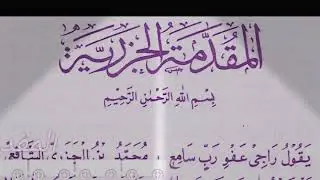 المُقَدِّمَةُ الجَزَرِيَّةُ
بِسْمِ اللهِ الرَّحْمٰنِ الرَّحِيْمِ
يَقُولُ رَاجِيْ عَفْوِ رَبٍّ سَامِعِ مُحَمَّدُ بْنُ الْجَزَرِيِّ الشَّافِعِي